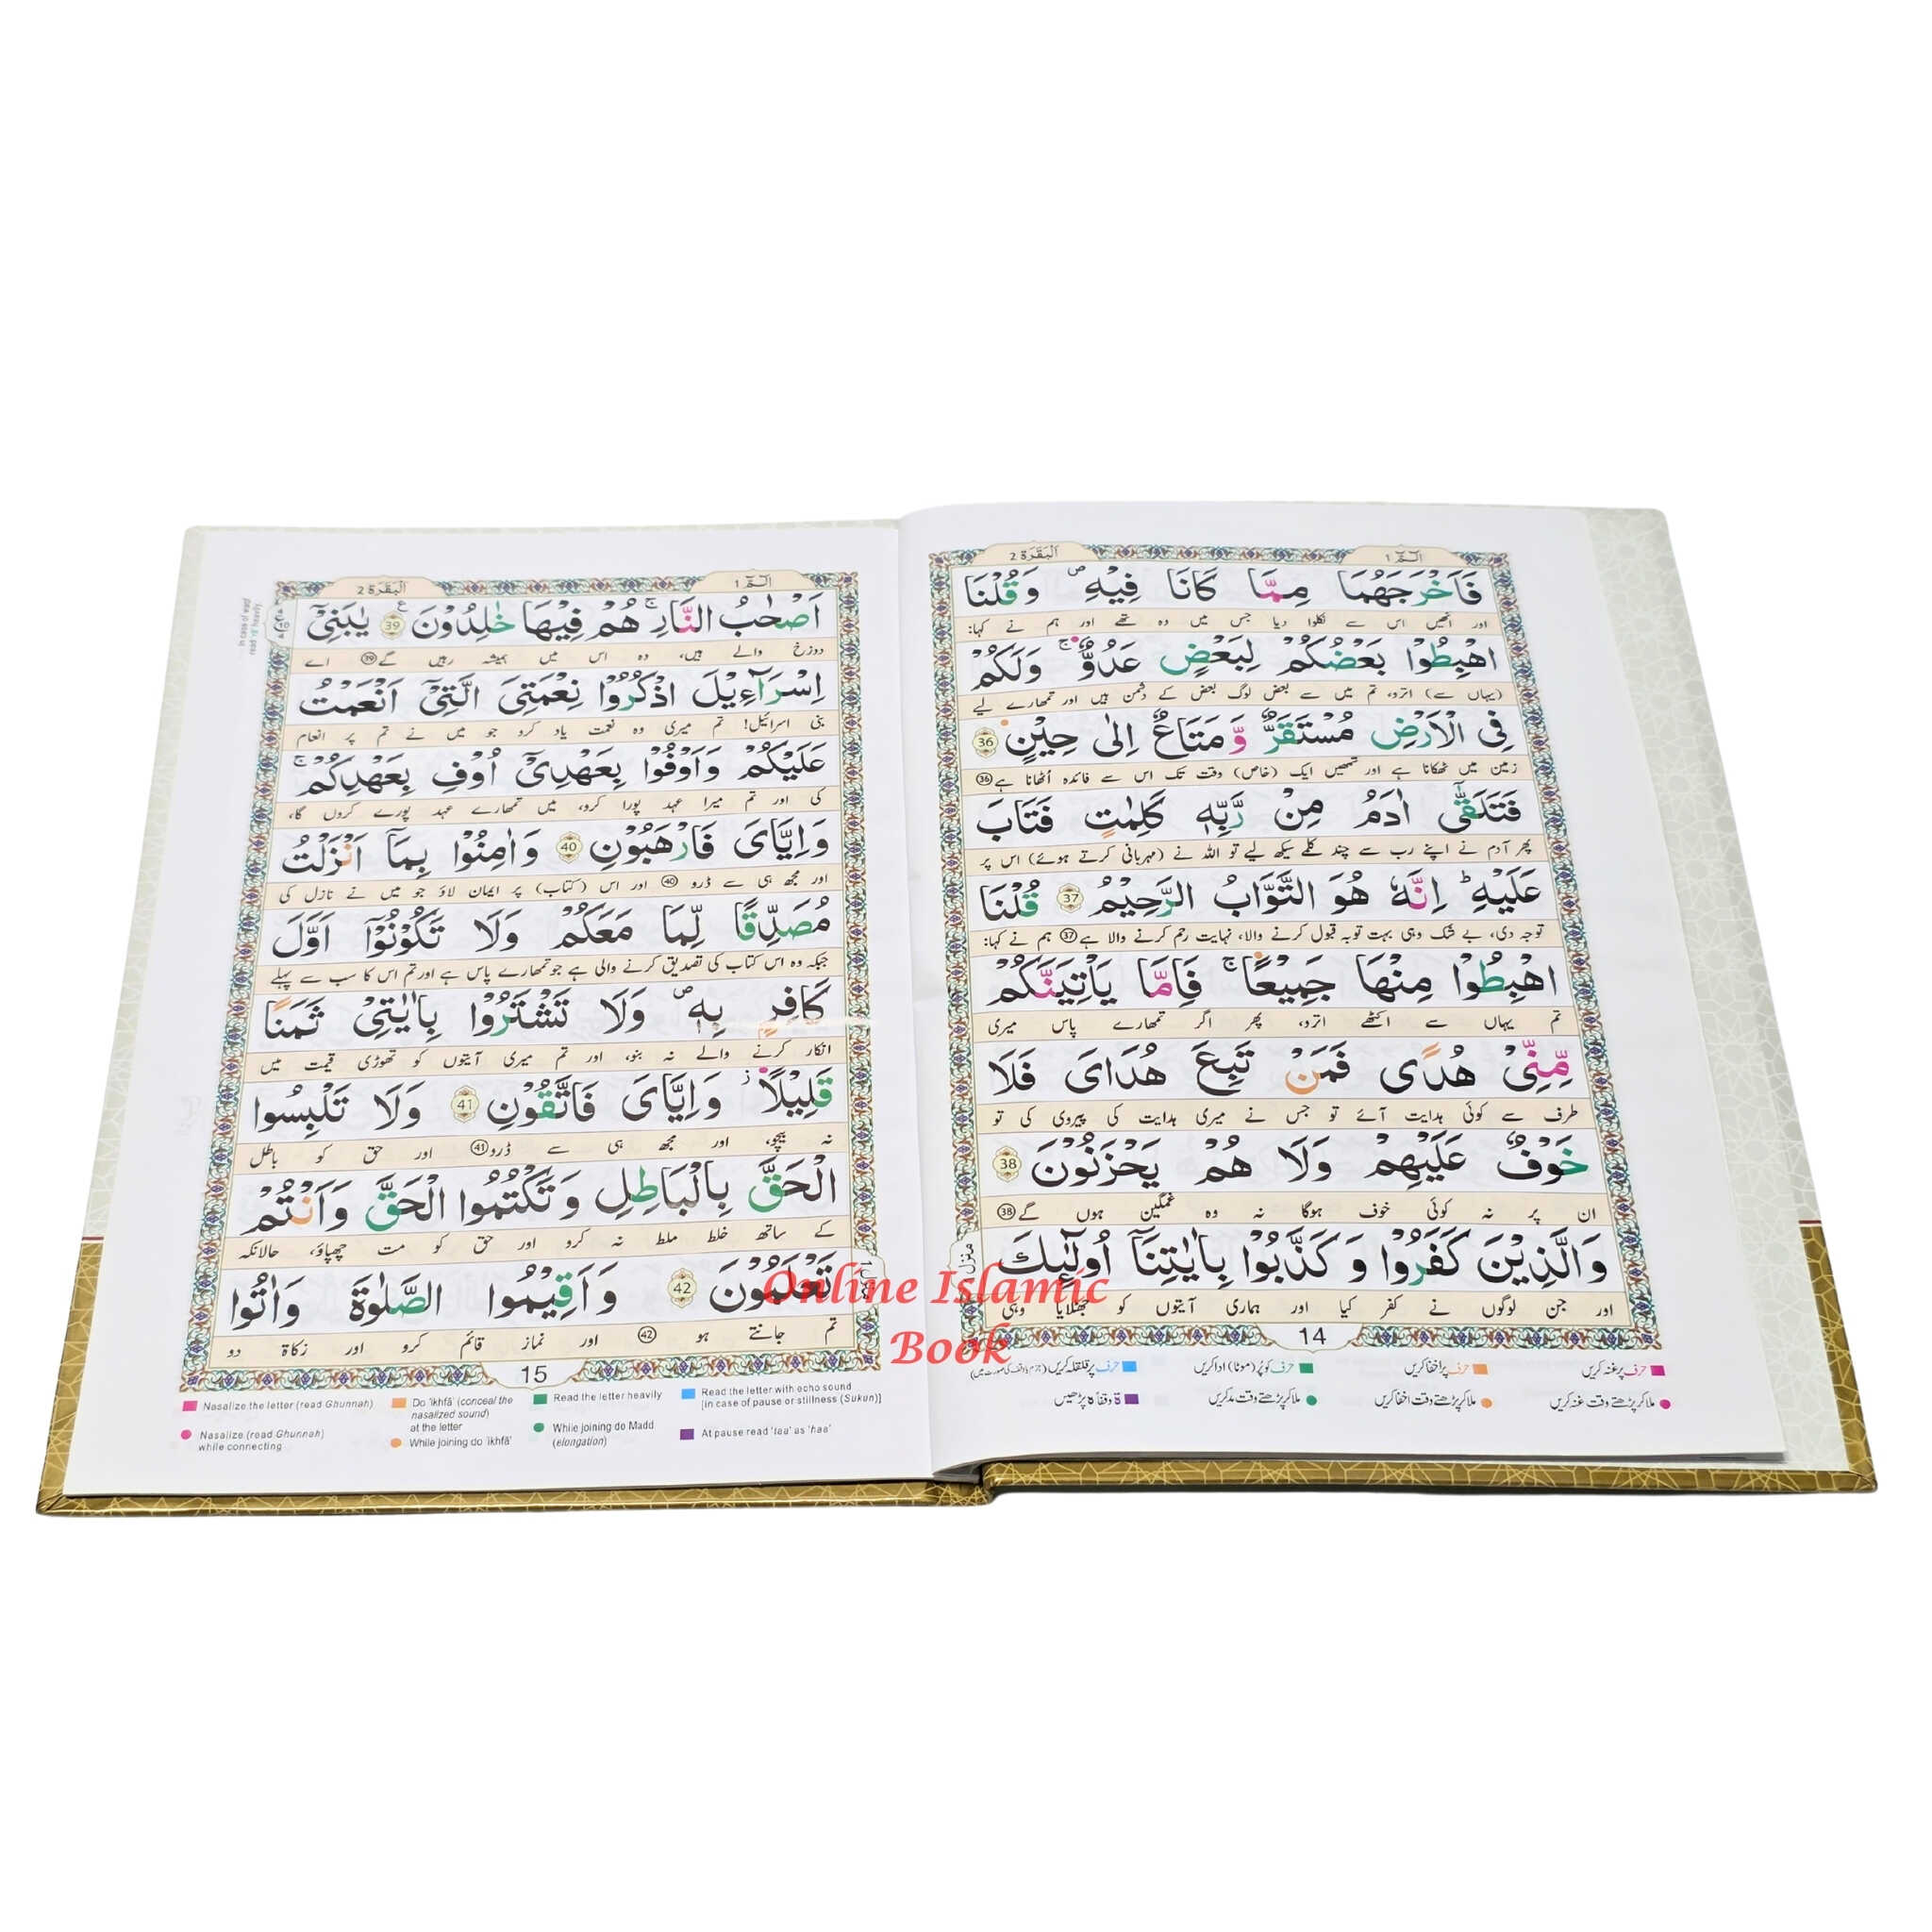 الٓمّٓ 1
اَلْبَقَرَة 2
فَاَخْرَجَهُمَا مِمَّا كَانَا فِيْهِ ۪ وَقُلْنَا
اور انھیں اس سے نکلوا دیا جس میں وہ تھے اور ہم نے کہا:
اهْبِطُوْا بَعْضُكُمْ لِبَعْضٍ عَدُوٌّ ۚ وَلَكُمْ
(یہاں سے) اترو، تم میں سے بعض لوگ بعض کے دشمن ہیں اور تمھارے لیے
فِى الْاَرْضِ مُسْتَقَرٌّ وَّ مَتَاعٌ اِلٰى حِيْنٍ 36
زمین میں ٹھکانا ہے اور تمھیں ایک (خاص) وقت تک اس سے فائدہ اُٹھانا ہے 36
فَتَلَقّٰٓى اٰدَمُ مِنْ رَّبِّهٖ كَلِمٰتٍ فَتَابَ
پھر آدم نے اپنے رب سے چند کلمے سیکھ لیے تو اللہ نے (مہربانی کرتے ہوئے) اس پر
عَلَيْهِ ؕ اِنَّهٗ هُوَ التَّوَّابُ الرَّحِيْمُ 37 قُلْنَا
توجہ دی، بے شک وہی بہت توبہ قبول کرنے والا، نہایت رحم کرنے والا ہے 37 ہم نے کہا:
اهْبِطُوْا مِنْهَا جَمِيْعًا ۚ فَاِمَّا يَاْتِيَنَّكُمْ
تم یہاں سے اکٹھے اترو، پھر اگر تمھارے پاس میری
مِّنِّىْ هُدًى فَمَنْ تَبِعَ هُدَاىَ فَلَا
طرف سے کوئی ہدایت آئے تو جس نے میری ہدایت کی پیروی کی تو
خَوْفٌ عَلَيْهِمْ وَلَا هُمْ يَحْزَنُوْنَ 38
ان پر نہ کوئی خوف ہوگا نہ وہ غمگین ہوں گے 38
وَالَّذِيْنَ كَفَرُوْا وَ كَذَّبُوْا بِاٰيٰتِنَآ اُولٰٓئِكَ
اور جن لوگوں نے کفر کیا اور ہماری آیتوں کو جھٹلایا وہی
منزل
14
حرف پر غنہ کریں
حرف پر اخفا کریں
حرف کو پُر (موٹا) ادا کریں
حرف پر قلقلہ کریں (جزم یا وقف کی صورت میں)
ملا کر پڑھتے وقت غنہ کریں
ملا کر پڑھتے وقت اخفا کریں
ملا کر پڑھتے وقت مد کریں
ة وقفا کا پڑھیں
الٓمّٓ 1
اَلْبَقَرَة 2
اَصْحٰبُ النَّارِ ۚ هُمْ فِيْهَا خٰلِدُوْنَ 39 يٰبَنِىْٓ
دوزخ والے ہیں، وہ اس میں ہمیشہ رہیں گے 39 اے
اِسْرَآءِيْلَ اذْكُرُوْا نِعْمَتِىَ الَّتِىْٓ اَنْعَمْتُ
بنی اسرائیل! تم میری وہ نعمت یاد کرو جو میں نے تم پر انعام
عَلَيْكُمْ وَاَوْفُوْا بِعَهْدِىْٓ اُوْفِ بِعَهْدِكُمْ ۚ
کی اور تم میرا عہد پورا کرو، میں تمھارے عہد پورے کروں گا،
وَاِيَّاىَ فَارْهَبُوْنِ 40 وَاٰمِنُوْا بِمَآ اَنْزَلْتُ
اور مجھ ہی سے ڈرو 40 اور اس (کتاب) پر ایمان لاؤ جو میں نے نازل کی
مُصَدِّقًا لِّمَا مَعَكُمْ وَلَا تَكُوْنُوْٓا اَوَّلَ
جبکہ وہ اس کتاب کی تصدیق کرنے والی ہے جو تمھارے پاس ہے اور تم اس کا سب سے پہلے
كَافِرٍ بِهٖ ۪ وَلَا تَشْتَرُوْا بِاٰيٰتِىْ ثَمَنًا
انکار کرنے والے نہ بنو، اور تم میری آیتوں کو تھوڑی قیمت میں
قَلِيْلًا ۡ وَاِيَّاىَ فَاتَّقُوْنِ 41 وَلَا تَلْبِسُوا
نہ بیچو، اور مجھ ہی سے ڈرو 41 اور حق کو باطل
الْحَقَّ بِالْبَاطِلِ وَ تَكْتُمُوا الْحَقَّ وَاَنْتُمْ
کے ساتھ خلط ملط نہ کرو اور حق کو مت چھپاؤ، حالانکہ
تَعْلَمُوْنَ 42 وَاَقِيْمُوا الصَّلٰوةَ وَاٰتُوا
تم جانتے ہو 42 اور نماز قائم کرو اور زکاة دو
15
Nasalize the letter (read Ghunnah)
Do 'ikhfā' (conceal the nasalized sound) at the letter
Read the letter heavily
Read the letter with echo sound [in case of pause or stillness (Sukun)]
Nasalize (read Ghunnah) while connecting
While joining do 'ikhfā'
While joining do Madd (elongation)
At pause read 'taa' as 'haa'
Online Islamic
Book